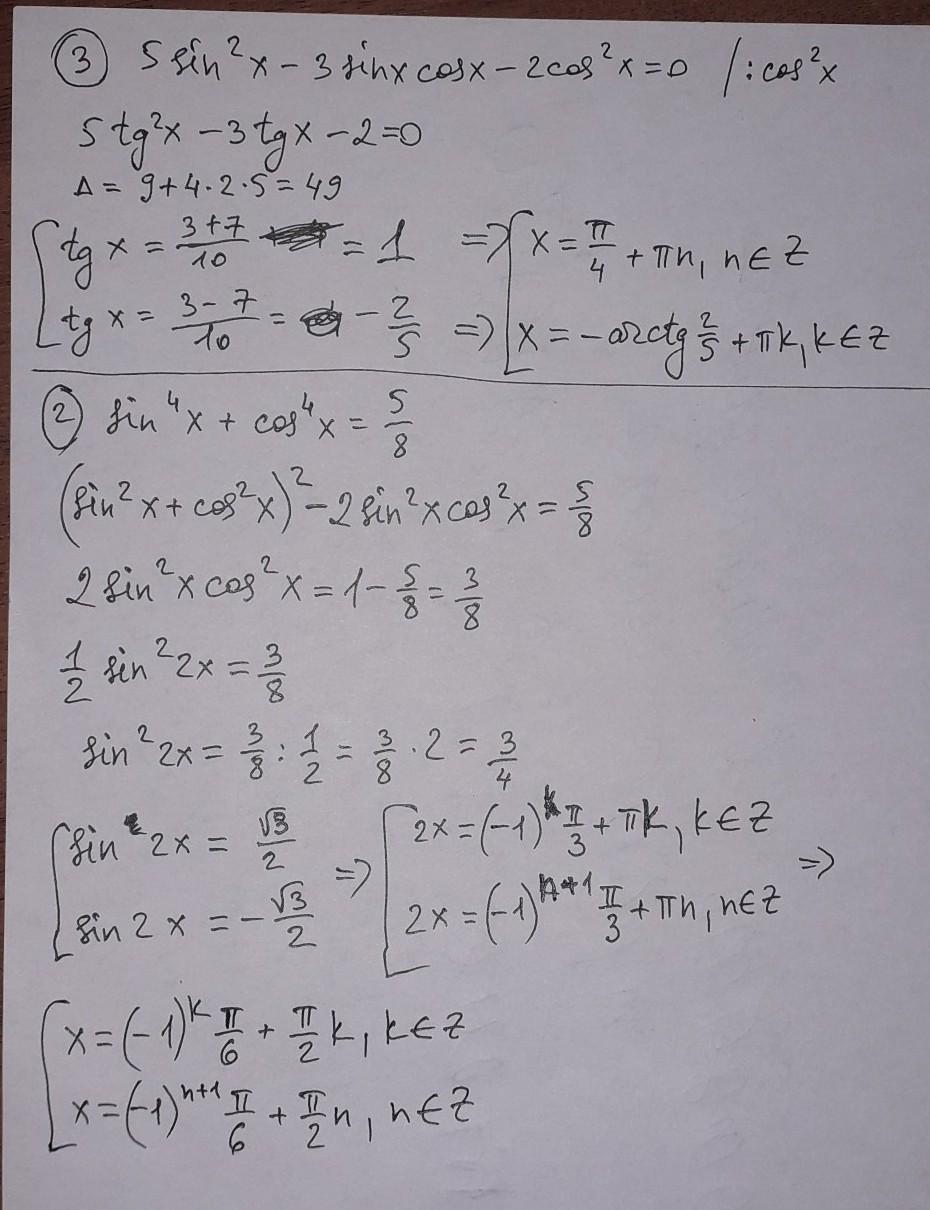 ③ 5 sin²x − 3 sinx cosx − 2cos²x = 0 /: cos²x
5 tg²x − 3 tgx − 2 = 0
Δ = 9 + 4·2·5 = 49
[ tg x = (3+7)/10 = 1 ⇒ [ x = π/4 + πn, n ∈ Z
[ tg x = (3−7)/10 = −2/5 ⇒ [ x = −arctg 2/5 + πk, k ∈ Z
② sin⁴x + cos⁴x = 5/8
(sin²x + cos²x)² − 2 sin²x cos²x = 5/8
2 sin²x cos²x = 1 − 5/8 = 3/8
1/2 sin²2x = 3/8
sin²2x = 3/8 : 1/2 = 3/8 · 2 = 3/4
[ sin 2x = √3/2 ⇒ [ 2x = (−1)^k π/3 + πk, k ∈ Z ⇒
[ sin 2x = −√3/2 [ 2x = (−1)^(n+1) π/3 + πn, n ∈ Z
[ x = (−1)^k π/6 + π/2 k, k ∈ Z
[ x = (−1)^(n+1) π/6 + π/2 n, n ∈ Z